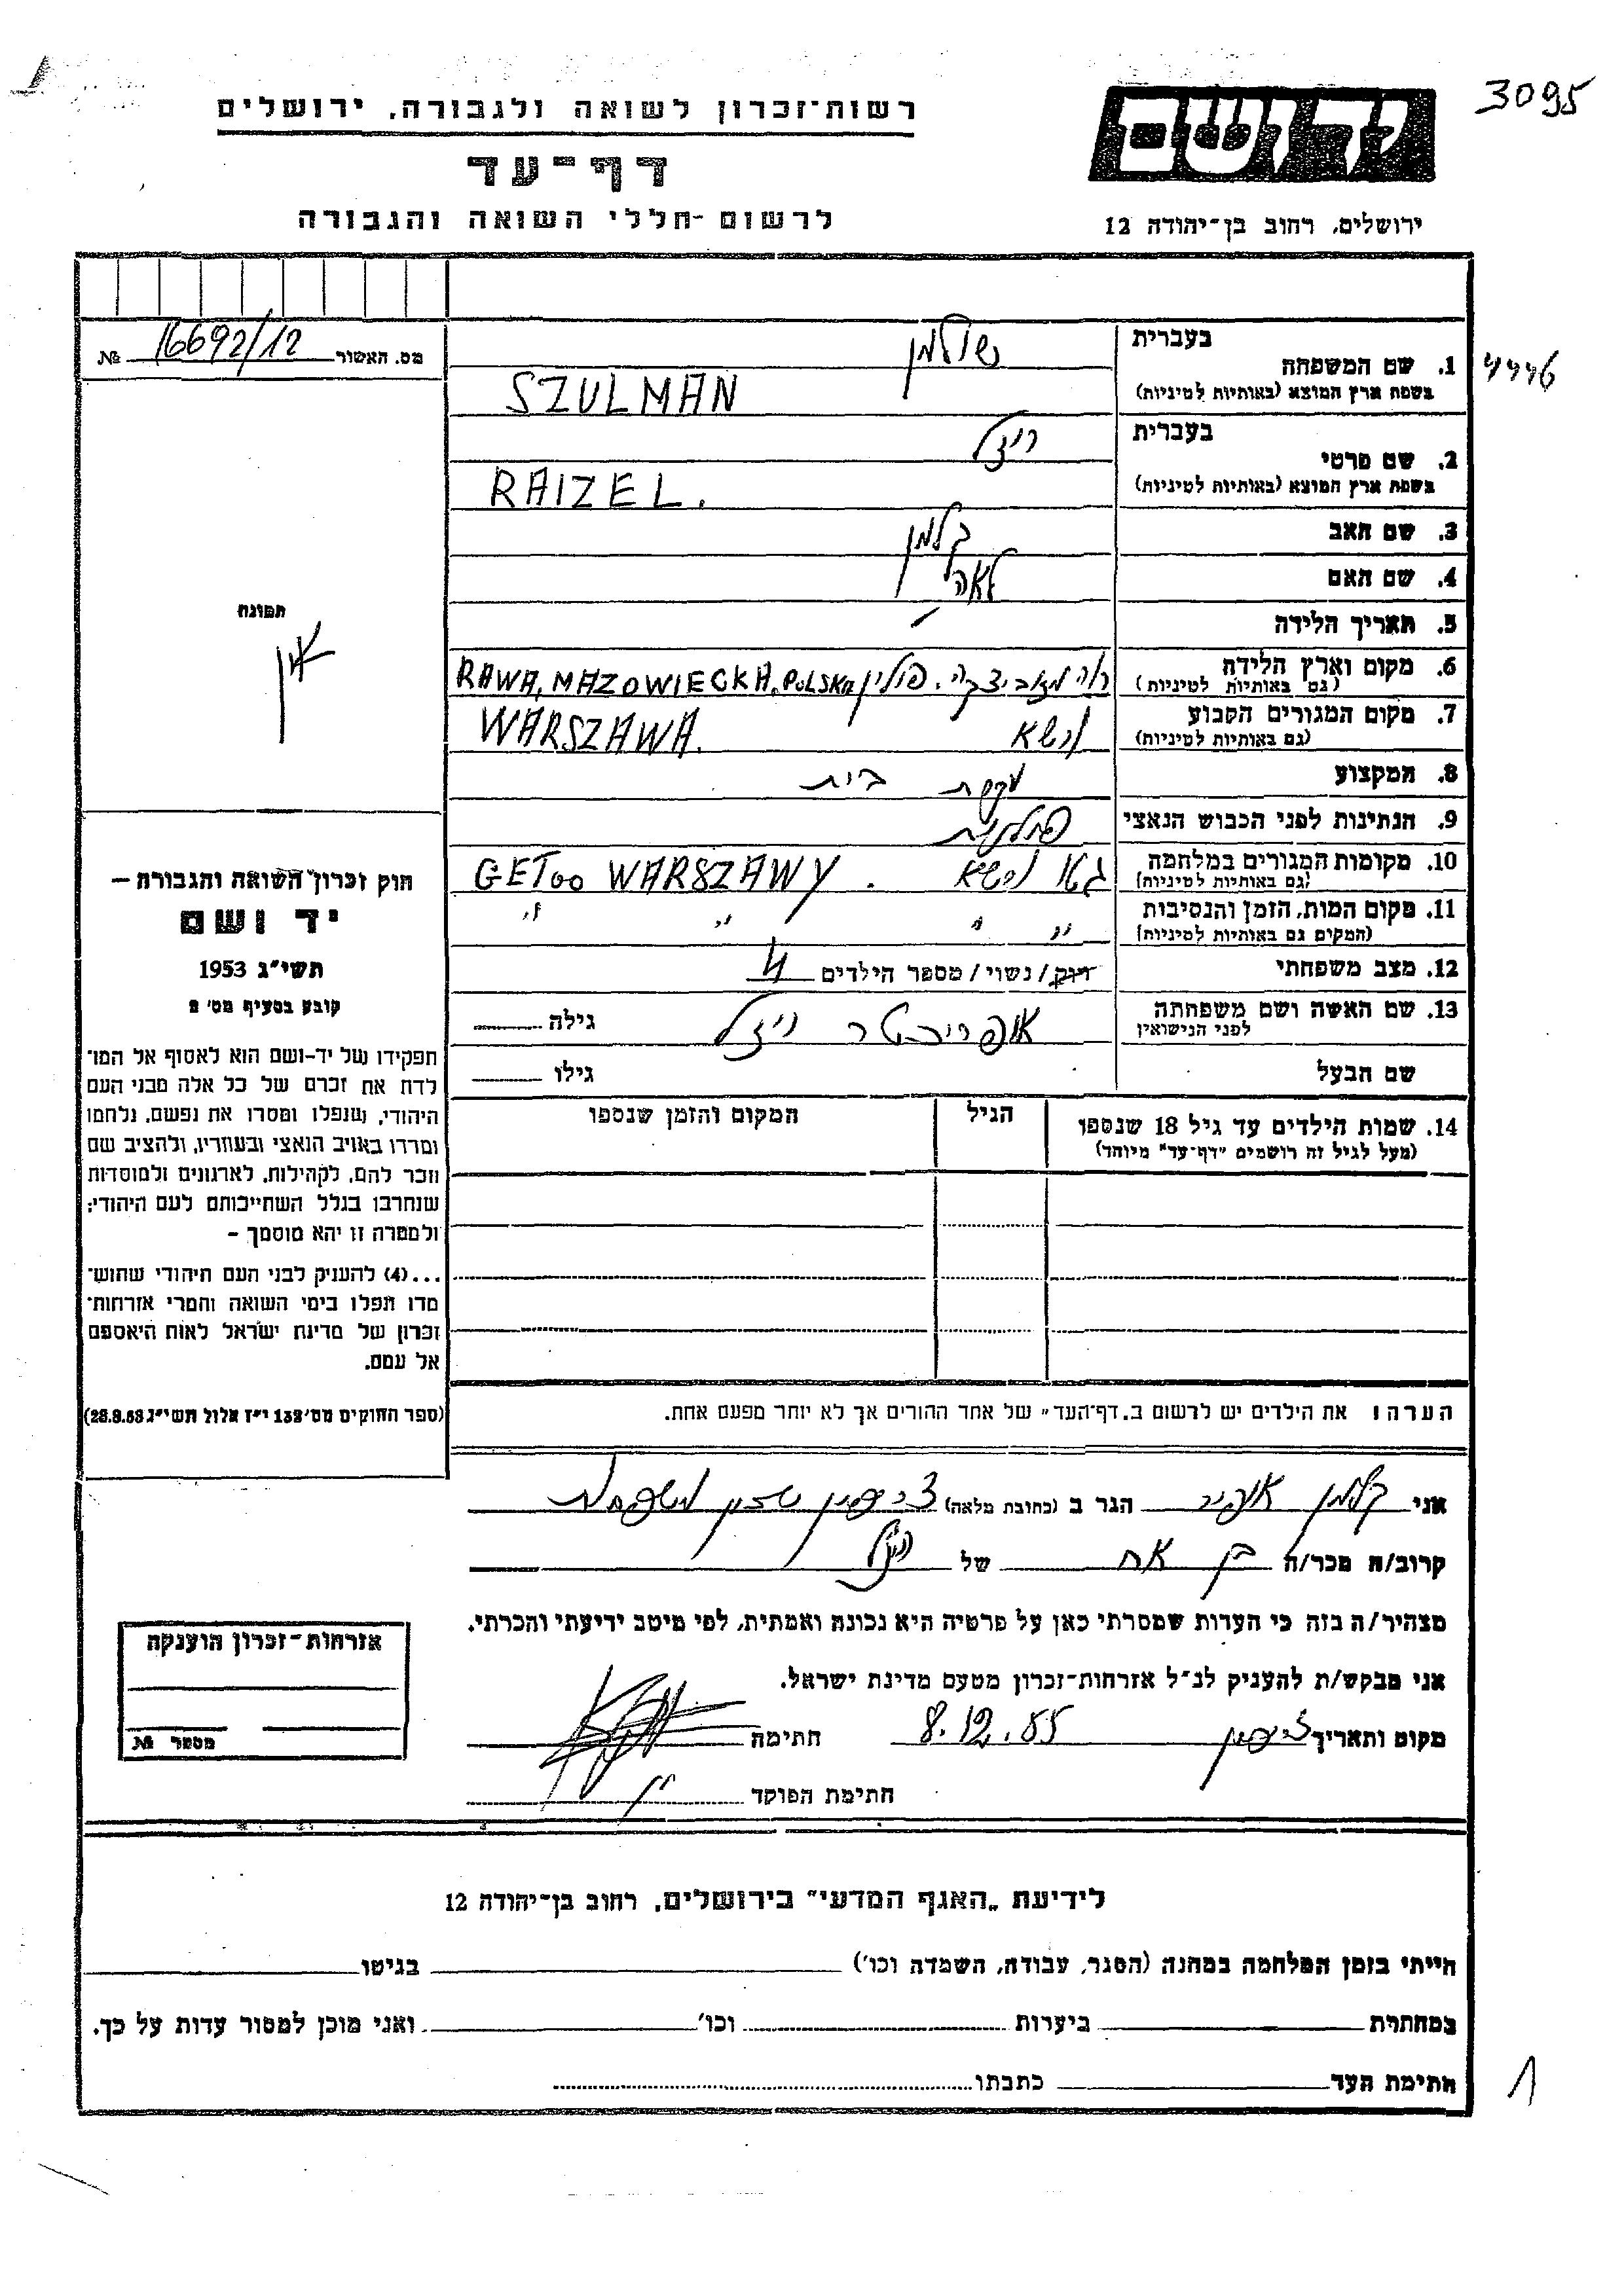 3095
רשות-זכרון לשואה ולגבורה, ירושלים
דף-עד
לרשום-חללי השואה והגבורה
יד ושם
ירושלים, רחוב בן-יהודה 12
מס. האשור 16692/12 №
בעברית
1. שם המשפחה שולמן
בשפת ארץ המוצא (באותיות לטיניות) SZULMAN
בעברית
2. שם פרטי ריזל
בשפת ארץ המוצא (באותיות לטיניות) RAIZEL.
3. שם האב קלמן
4. שם האם לאה
5. תאריך הלידה -
6. מקום וארץ הלידה
(גם באותיות לטיניות) פולין RAWA, MAZOWIECKA, POLSKA
7. מקום המגורים הקבוע
(גם באותיות לטיניות) ורשא WARSZAWA.
8. המקצוע עקרת בית
9. הנתינות לפני הכבוש הנאצי פולנית
10. מקומות המגורים במלחמה
(גם באותיות לטיניות) גטו ורשא . GEToo WARSZAWY
11. מקום המות, הזמן והנסיבות
(המקום גם באותיות לטיניות) " " " "
12. מצב משפחתי רווק/נשוי/ מספר הילדים 4
13. שם האשה ושם משפחתה
לפני הנישואין ריזל גילה
שם הבעל גילו
14. שמות הילדים עד גיל 18 שנספו
(מעל לגיל זה רושמים "דף-עד" מיוחד)
הגיל
המקום והזמן שנספו
הערה: את הילדים יש לרשום ב„דף-העד" של אחד ההורים אך לא יותר מפעם אחת.
תמונה
אין
חוק זכרון השואה והגבורה –
יד ושם
תשי"ג 1953
קובע בסעיף מס' 2
תפקידו של יד-ושם הוא לאסוף אל המו-
לדת את זכרם של כל אלה מבני העם
היהודי, שנפלו ומסרו את נפשם, נלחמו
ומרדו באויב הנאצי ובעוזריו, ולהציב שם
וזכר להם, לקהילות, לארגונים ולמוסדות
שנחרבו בגלל השתייכותם לעם היהודי;
ולמטרה זו יהא מוסמך –
...(4) להעניק לבני העם היהודי שהוש-
מדו ונפלו בימי השואה והמרי אזרחות-
זכרון של מדינת ישראל לאות היאספם
אל עמם.
(ספר החוקים מס' 132 י"ז אלול תשי"ג 28.8.53)
אני קלמן אופיר הגר ב (כתובת מלאה) צריפין שכון משפחות
קרוב/ה מכר/ה בן אח של הנ"ל
מצהיר/ה בזה כי העדות שמסרתי כאן על פרטיה היא נכונה ואמתית, לפי מיטב ידיעתי והכרתי.
אני מבקש/ת להעניק לנ"ל אזרחות-זכרון מטעם מדינת ישראל.
מקום ותאריך צריפין 8.12.55 חתימה
חתימת הפוקד
אזרחות-זכרון הוענקה
מספר №
לידיעת „האגף המדעי" בירושלים, רחוב בן-יהודה 12
הייתי בזמן המלחמה במחנה (הסגר, עבודה, השמדה וכו') בגיטו
במחתרת ביערות וכו' ואני מוכן למסור עדות על כך.
חתימת העד כתבתו
1